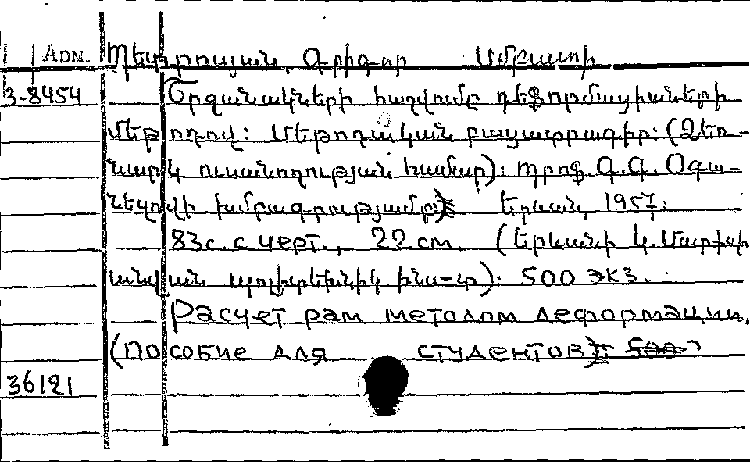 Арм. Պետրոսյան, Գրիգոր Սմբատի
3-8454 Շրջանակների հաշվումը դեֆորմացիաների
մեթոդով: Մեթոդական բացատրագիր: (Ձեռ-
նարկ ուսանողության համար): Պրոֆ. Գ. Գ. Օգա-
նեզովի խմբագրությամբ: Երևան, 1957.
83с. с черт., 22 см. (Երևանի Կ. Մարքսի
անվան պոլիտեխնիկ ինս-տ): 500 экз.
Расчет рам методом деформации.
(Пособие для студентов): 500
36121